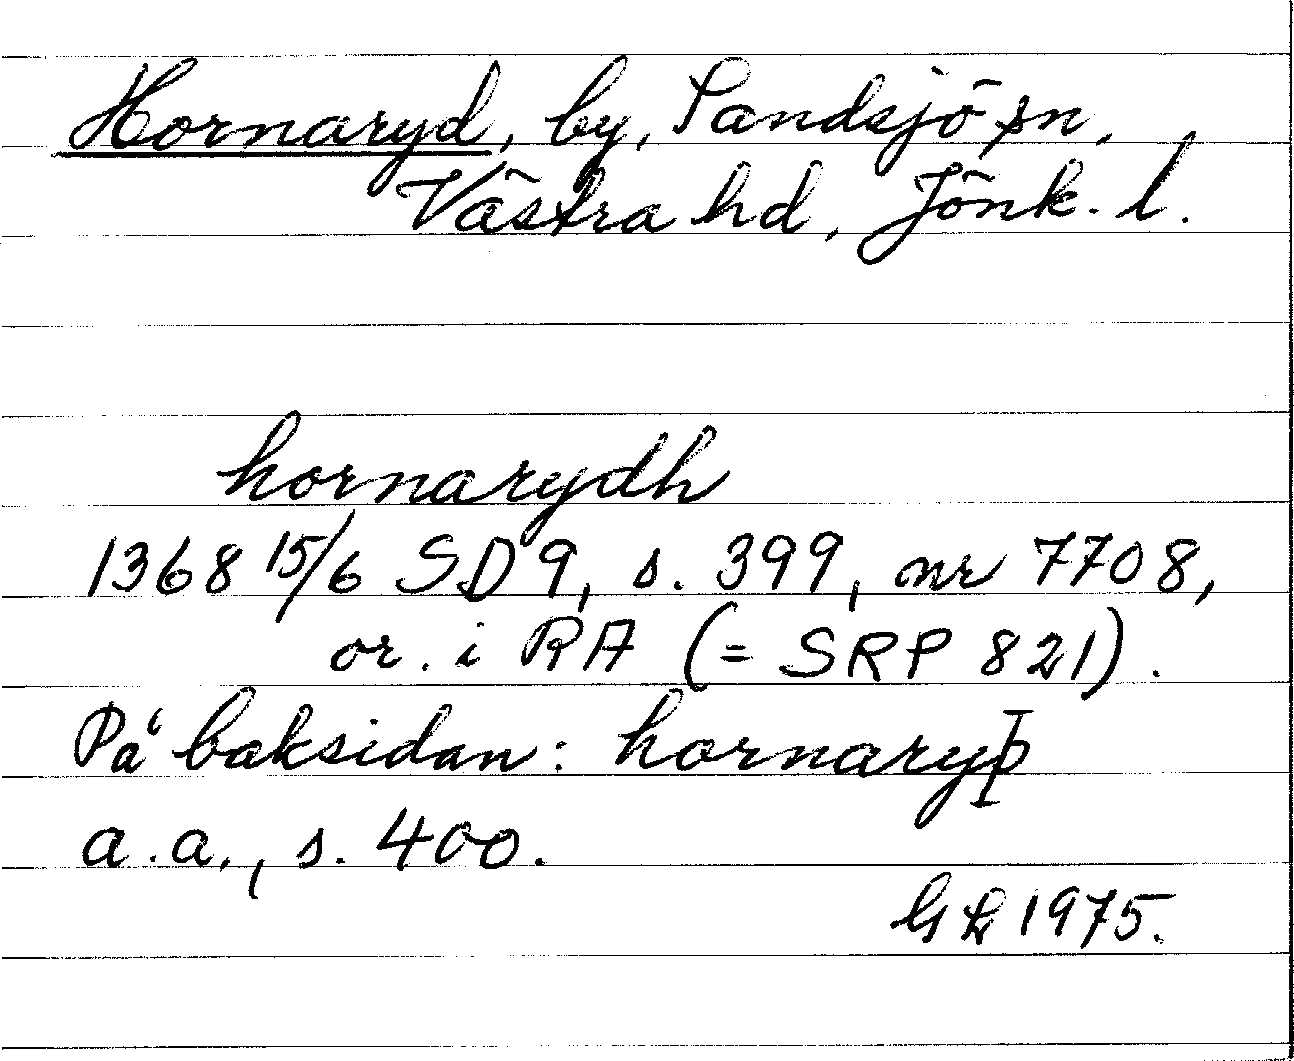 Hornaryd, by, Sandsjö sn,
Västra hd, Jönk. l.
hornarydh
1368 15/6 SD 9, s. 399, nr 7708,
or. i RA (= SRP 821).
På baksidan: hornaryþ
a.a., s. 400.
1975.